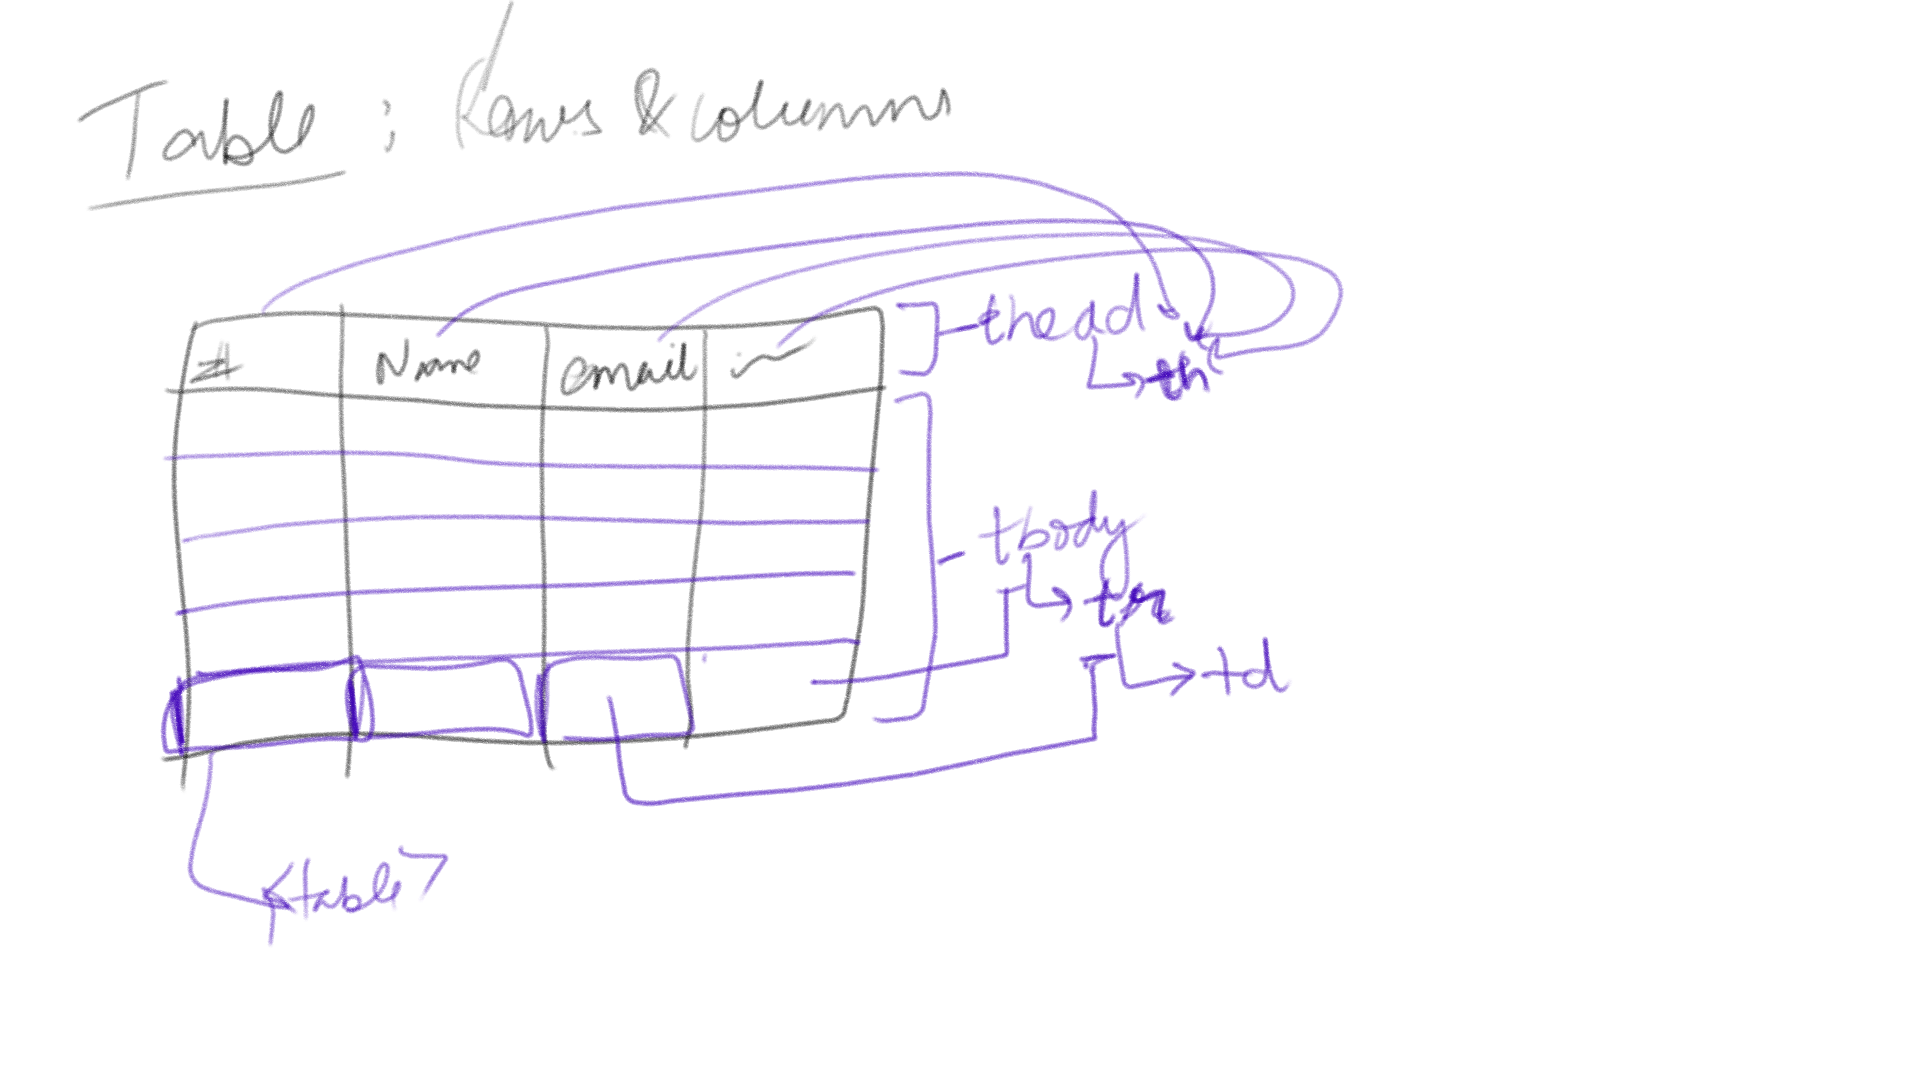 Table : Rows & columns
# Name email
thead
th
tbody
tr
td
<table>